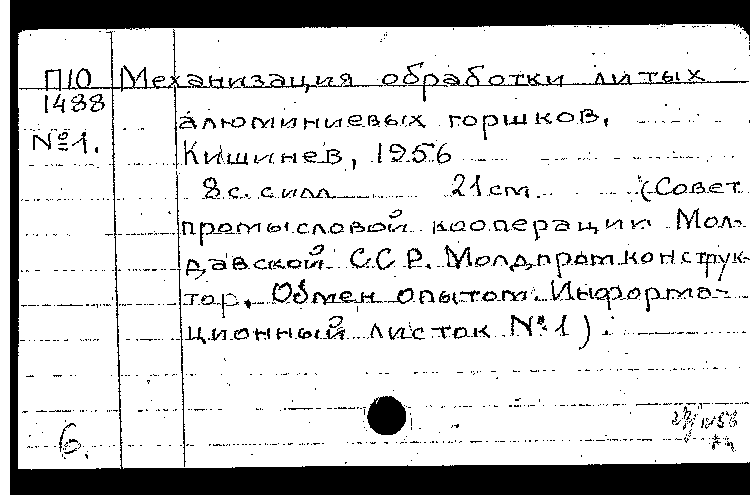 П10 Механизация обработки литых
1488
алюминиевых горшков,
№1.
Кишинев, 1956
8 с. с илл. 21 см. (Совет
промысловой кооперации Мол-
давской ССР. Молдпромконструк-
тор. Обмен опытом. Информа-
ционный листок №1).
6.